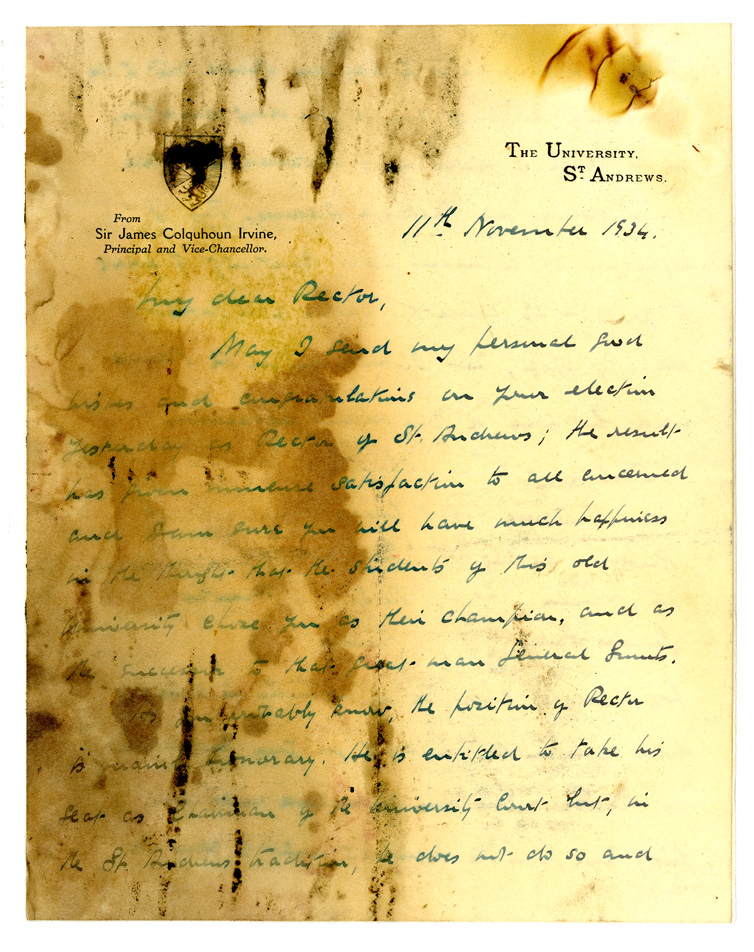 THE UNIVERSITY,
ST ANDREWS.
From
Sir James Colquhoun Irvine,
Principal and Vice-Chancellor.
11th November 1934.
My dear Rector,
May I send my personal good
wishes and congratulations on your election
yesterday as Rector of St. Andrews; the result
has given immense satisfaction to all concerned
and I am sure you will have much happiness
in the thought that the students of this old
University chose you as their champion, and as
the successor to that great man General Smuts.
As you probably know, the position of Rector
is mainly honorary. He is entitled to take his
seat as Chairman of the University Court but, in
the St. Andrews tradition, he does not do so and